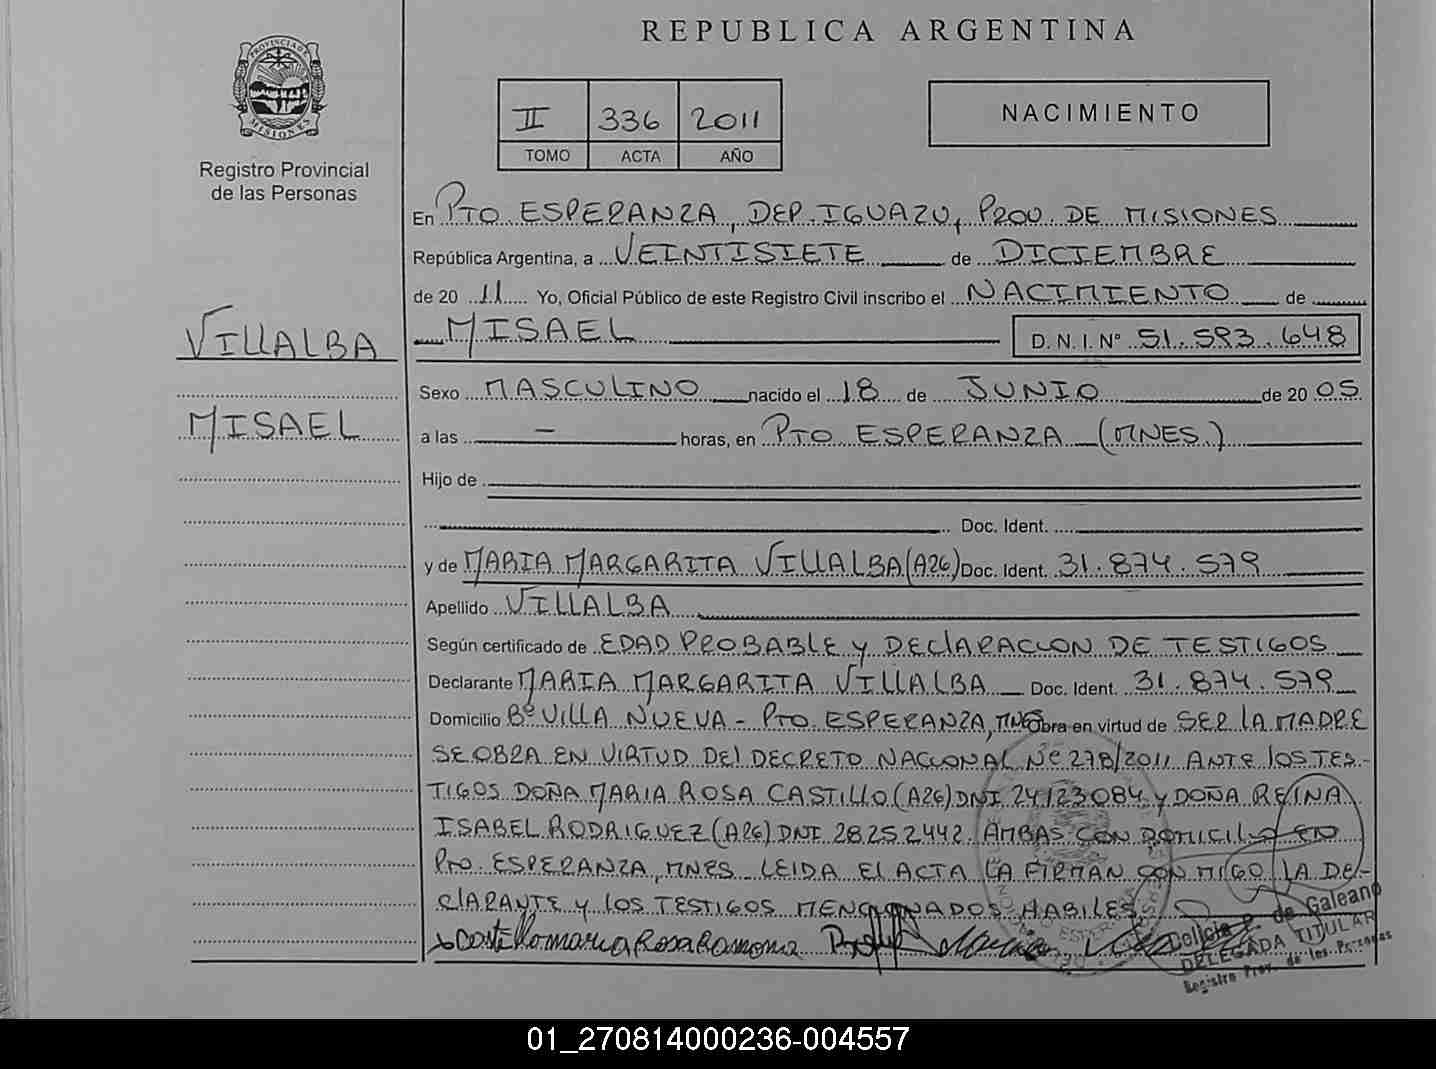 REPUBLICA ARGENTINA
PROVINCIA DE MISIONES
Registro Provincial
de las Personas
II 336 2011
TOMO ACTA AÑO
NACIMIENTO
En PTO ESPERANZA, DEP. IGUAZU, PROV. DE MISIONES
República Argentina, a VEINTISIETE de DICIEMBRE
de 20 11 Yo, Oficial Público de este Registro Civil inscribo el NACIMIENTO de
MISAEL D. N. I. N° 51.593.648
VILLALBA
MISAEL
Sexo MASCULINO nacido el 18 de JUNIO de 20 05
a las — horas, en PTO ESPERANZA (MNES.)
Hijo de
Doc. Ident.
y de MARIA MARGARITA VILLALBA (A26) Doc. Ident. 31.874.579
Apellido VILLALBA
Según certificado de EDAD PROBABLE y DEClARACION DE TESTIGOS
Declarante MARIA MARGARITA VILLALBA Doc. Ident. 31.874.579
Domicilio Bº VILLA NUEVA - PTO. ESPERANZA, MNES Obra en virtud de SER lA MADRE
SE OBRA EN VIRTUD DEl DECRETO NACIONAL Nº 278/2011 ANTE lOS TES-
TIGOS DOÑA MARIA ROSA CASTILLO (A26) DNI 24123084 y DOÑA REINA
ISABEL RODRIGUEZ (A26) DNI 28252442. AMBAS CON DOMICILIO EN
PTO. ESPERANZA, MNES. LEIDA El ACTA LA FIRMAN CON MIGO LA DE-
ClARANTE y LOS TESTIGOS MENCIONADOS HABILES
Castillo maria Rosa Ramona
de Galeano
DELEGADA TITULAR
Registro Prov. de las Personas
01_270814000236-004557